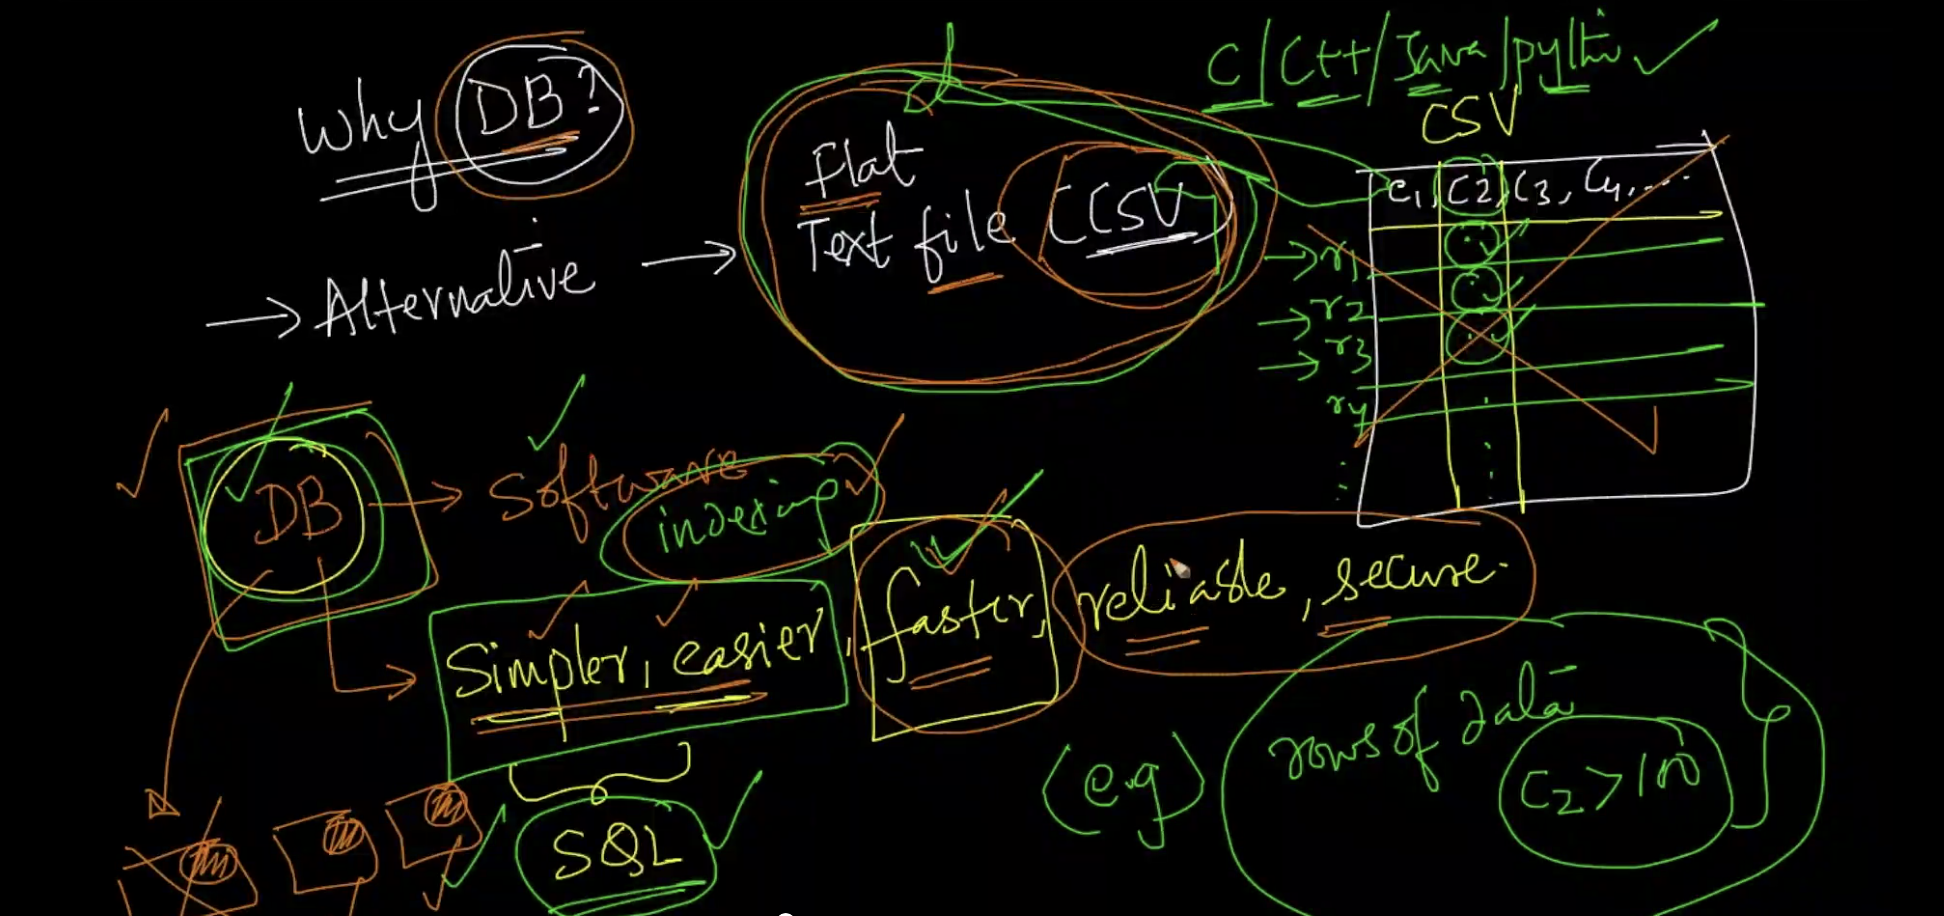 Why DB?
→ Alternative → Flat
Text file (CSV)
C/C++/Java/python ✓
CSV
C1, C2, C3, C4, ....
→ r1
→ r2
→ r3
r4
DB → Software
indexing
Simpler, easier, faster, reliable, secure.
SQL
(e.g)
rows of data
C2 > 100